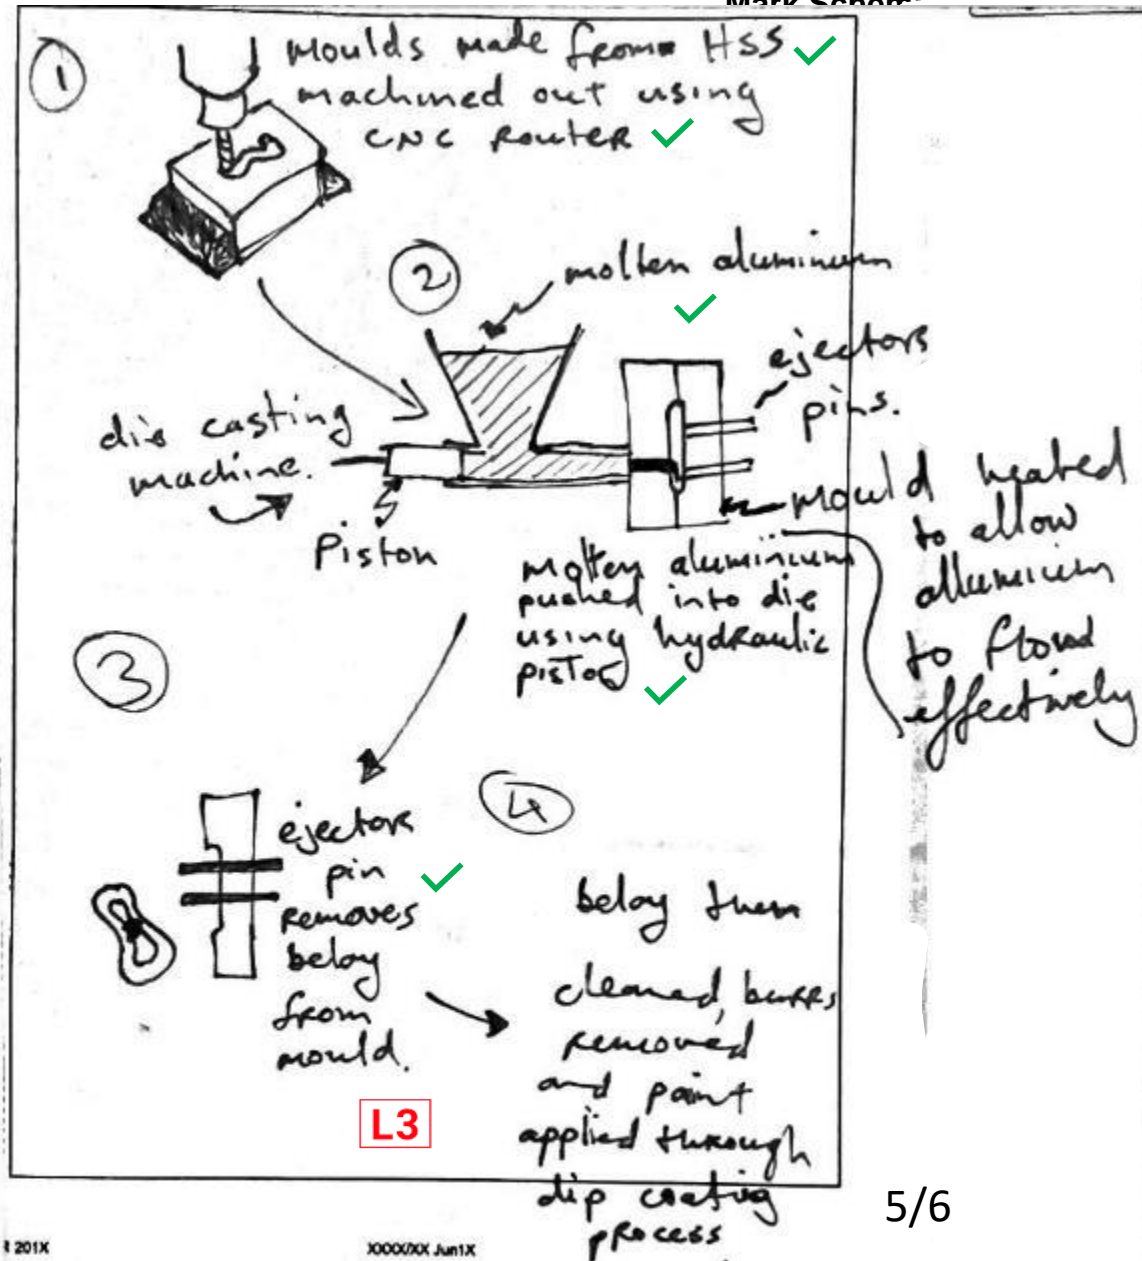 Mark Schem
1
moulds made from HSS
machined out using
CNC Router
2
molten aluminium
ejectors
pins.
die casting
machine.
Piston
mould heated
to allow
allumicum
to flowd
effectively
molten aluminium
pushed into die
using hydraulic
piston
3
ejectors
pin
removes
belay
from
mould.
4
belay then
cleaned, burrs,
removed
and paint
applied through
dip coating
process
L3
5/6
201X
XXXX/XX Jun1X